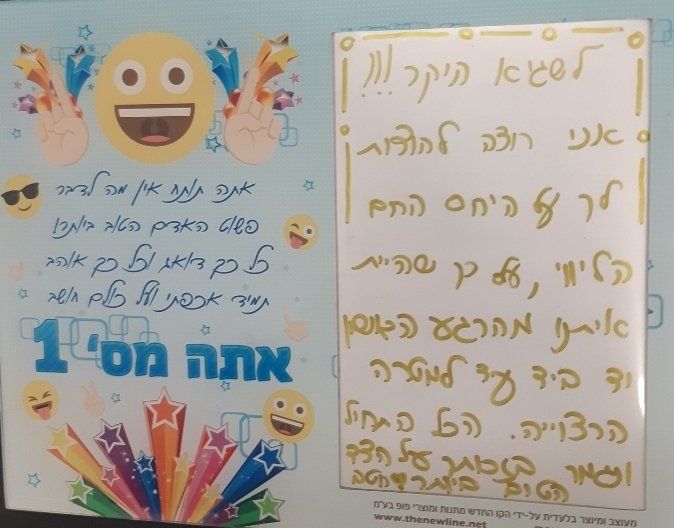 לשגיא היקר!!!
אני רוצה להודות
לך על היחס החם
הליווי, על כך שהיית
איתנו מהרגע הראשון
יד ביד עד למטרה
הרצוייה. הכל התחיל
ונגמר בזכותך על הצד
הטוב ביותר
אתה תותח אין מה לדבר
פשוט האדם הטוב ביותר!
כל כך דואג וכל כך אוהב
תמיד אכפתי ועל כולם חושב
אתה מס' 1
מעוצב ומיוצר בלעדית על-ידי הקו החדש מתנות ומוצרי פופ בע"מ
www.thenewline.net